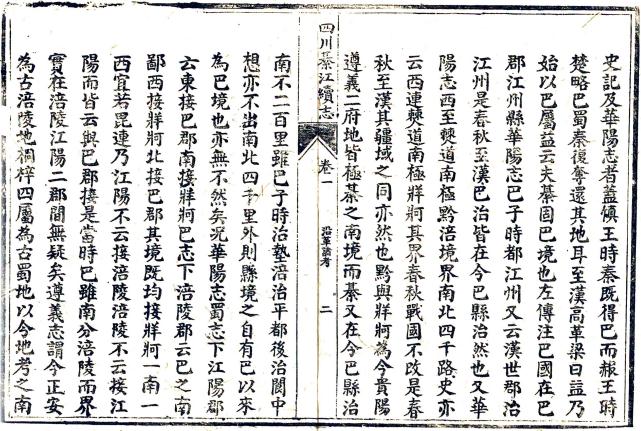 史記及華陽志者蓋慎王時秦既得巴而赧王時
楚略巴蜀秦復奪還其地耳至漢高革梁曰益乃
始以巴屬益云夫綦固巴境也左傳注巴國在巴
郡江州縣華陽志巴子時都江州又云漢世郡治
江州是春秋至漢巴治皆在今巴縣治然也又華
陽志西至僰道南極黔涪境界南北四千路史亦
云西連僰道南極牂牁其界春秋戰國不改是春
秋至漢其疆域之同亦然也黔與牂牁為今貴陽
遵義二府地皆極綦之南境而綦又在今巴縣治
四川綦江續志
卷一
沿革論考
二
南不二百里雖巴子時治墊涪治平都後治閬中
想亦不出南北四千里外則縣境之自有巴以來
為巴境也亦無不然矣況華陽志蜀志下江陽郡
云東接巴郡南接牂牁巴志下涪陵郡云巴之南
鄙西接牂牁北接巴郡其境既均接牂牁一南一
西宜若毘連乃江陽不云接涪陵涪陵不云接江
陽而皆云與巴郡接是當時巴雖南分涪陵而界
實在涪陵江陽二郡間無疑矣遵義志謂今正安
為古涪陵地桐梓四屬為古蜀地以今地考之南